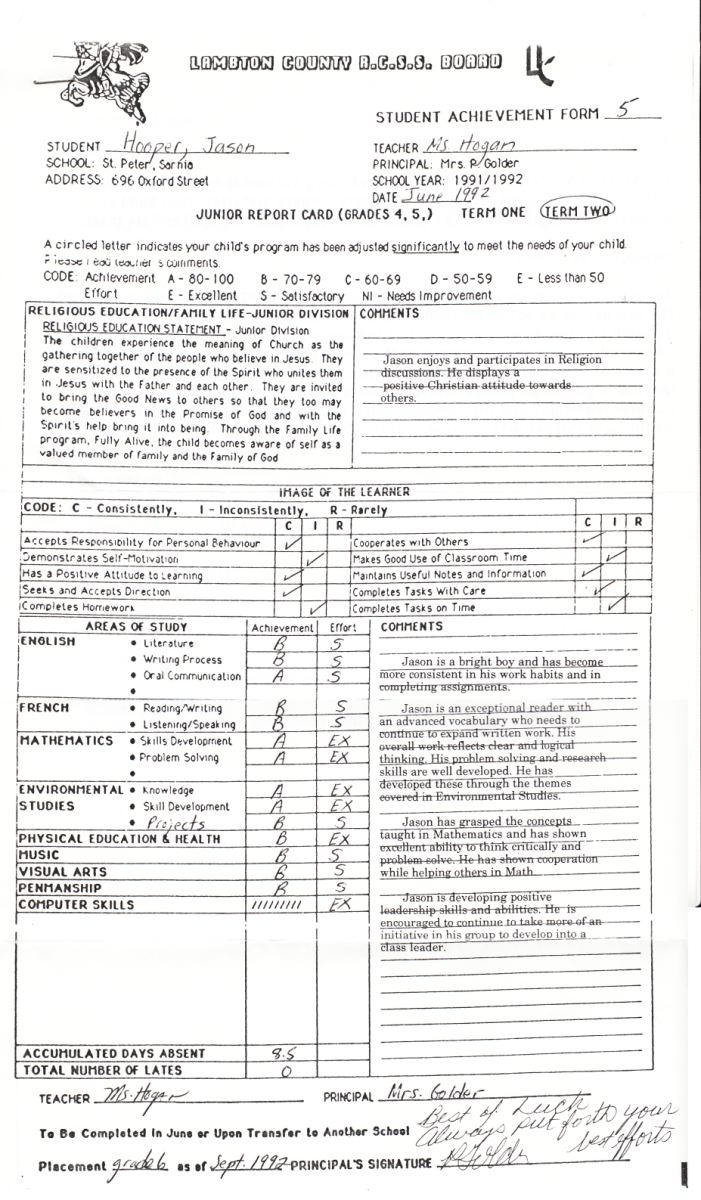 LAMBTON COUNTY R.C.S.S. BOARD
STUDENT ACHIEVEMENT FORM 5
STUDENT Hooper, Jason
TEACHER Ms Hogan
SCHOOL: St. Peter, Sarnia
PRINCIPAL: Mrs. P. Golder
ADDRESS: 696 Oxford Street
SCHOOL YEAR: 1991/1992
DATE June 1992
JUNIOR REPORT CARD (GRADES 4, 5,) TERM ONE TERM TWO
A circled letter indicates your child's program has been adjusted significantly to meet the needs of your child.
Please read teacher's comments.
CODE: Achievement A - 80-100 B - 70-79 C - 60-69 D - 50-59 E - Less than 50
Effort E - Excellent S - Satisfactory NI - Needs Improvement
RELIGIOUS EDUCATION/FAMILY LIFE-JUNIOR DIVISION
RELIGIOUS EDUCATION STATEMENT - Junior Division
The children experience the meaning of Church as the
gathering together of the people who believe in Jesus. They
are sensitized to the presence of the Spirit who unites them
in Jesus with the Father and each other. They are invited
to bring the Good News to others so that they too may
become believers in the Promise of God and with the
Spirit's help bring it into being. Through the Family Life
program, Fully Alive, the child becomes aware of self as a
valued member of family and the Family of God
COMMENTS
Jason enjoys and participates in Religion
discussions. He displays a
positive Christian attitude towards
others.
IMAGE OF THE LEARNER
CODE: C - Consistently, I - Inconsistently, R - Rarely
C I R
C I R
Accepts Responsibility for Personal Behaviour
Cooperates with Others
Demonstrates Self-Motivation
Makes Good Use of Classroom Time
Has a Positive Attitude to Learning
Maintains Useful Notes and Information
Seeks and Accepts Direction
Completes Tasks With Care
Completes Homework
Completes Tasks on Time
AREAS OF STUDY Achievement Effort
ENGLISH • Literature B S
• Writing Process B S
• Oral Communication A S
•
FRENCH • Reading/Writing B S
• Listening/Speaking B S
MATHEMATICS • Skills Development A EX
• Problem Solving A EX
•
ENVIRONMENTAL • Knowledge A EX
STUDIES • Skill Development A EX
• Projects B S
PHYSICAL EDUCATION & HEALTH B EX
MUSIC B S
VISUAL ARTS B S
PENMANSHIP B S
COMPUTER SKILLS ///////// EX
ACCUMULATED DAYS ABSENT 8.5
TOTAL NUMBER OF LATES 0
COMMENTS
Jason is a bright boy and has become
more consistent in his work habits and in
completing assignments.
Jason is an exceptional reader with
an advanced vocabulary who needs to
continue to expand written work. His
overall work reflects clear and logical
thinking. His problem solving and research
skills are well developed. He has
developed these through the themes
covered in Environmental Studies.
Jason has grasped the concepts
taught in Mathematics and has shown
excellent ability to think critically and
problem solve. He has shown cooperation
while helping others in Math
Jason is developing positive
leadership skills and abilities. He is
encouraged to continue to take more of an
initiative in his group to develop into a
class leader.
TEACHER Ms. Hogan PRINCIPAL Mrs. Golder
Best of Luck
Always put forth your
best efforts
To Be Completed in June or Upon Transfer to Another School
Placement grade 6 as of Sept. 1992 PRINCIPAL'S SIGNATURE P Golder